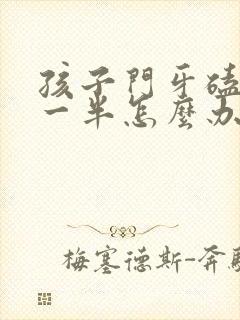 孩子門牙磕
一半怎麼办
梅塞德斯-奔馳